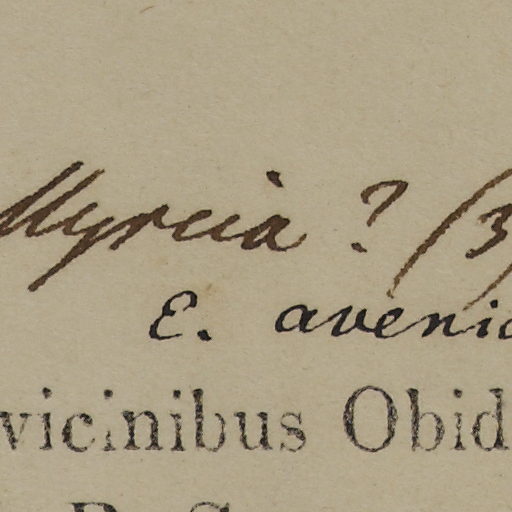 Myrcia ? (3)
E. aveni
vicinibus Obid